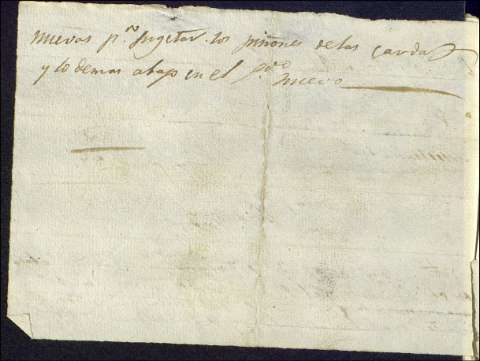 nuevas p.ª sugetar los piñones de las cardas
y lo demas abajo en el
nuevo